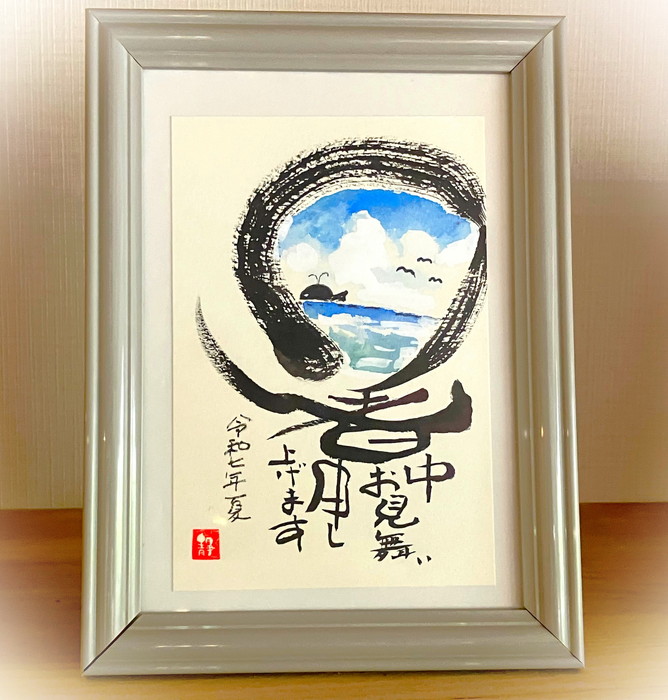 暑中
お見舞い
申し
上げます
令和七年夏